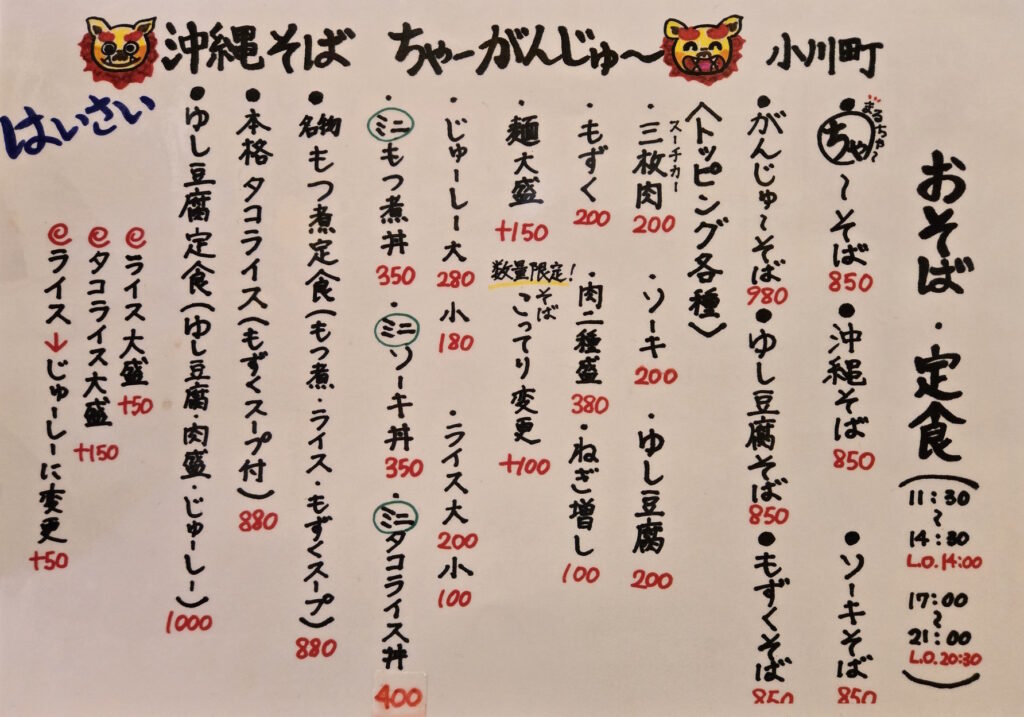 沖縄そば ちゃーがんじゅ〜 小川町
はいさい
おそば・定食(11:30〜14:30 L.O.14:00 17:00〜21:00 L.O.20:30)
まるちゃ〜
●ちゃ〜そば850 ●沖縄そば850 ●ソーキそば850
●がんじゅ〜そば980 ●ゆし豆腐そば850 ●もずくそば850
〈トッピング各種〉
・三枚肉200 ・ソーキ200 ・ゆし豆腐200
スーチカー
・もずく200 ・肉二種盛380 ・ねぎ増し100
・麺大盛+150 数量限定!そばこってり変更+100
・じゅーしー大280 小180 ・ライス大200 小100
・ミニもつ煮丼350 ・ミニソーキ丼350 ・ミニタコライス丼400
●名物もつ煮定食(もつ煮・ライス・もずくスープ)880
●本格タコライス(もずくスープ付)880
●ゆし豆腐定食(ゆし豆腐・肉盛・じゅーしー)1000
ライス大盛+50
タコライス大盛+150
ライス→じゅーしーに変更+50